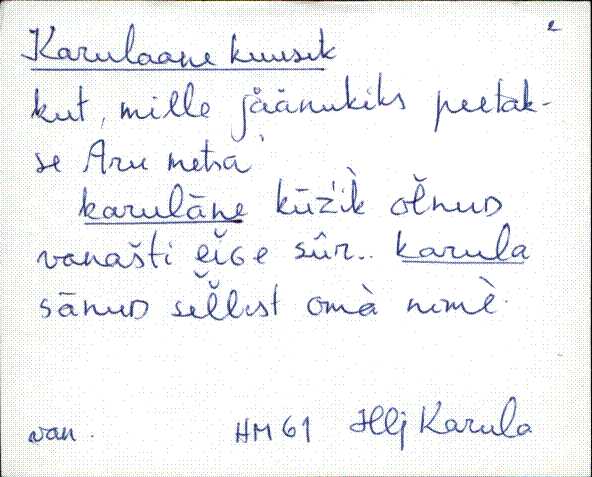 2
Karulaane kuusik
kut, mille jäänukiks peetak-
se Aru metsa
karulāne kūz'ìk ol̆nuD
vanašti eĭGe sûr.. karula
sānuD sel̆lest omà nimè.
van. HM 61 Hlj Karula